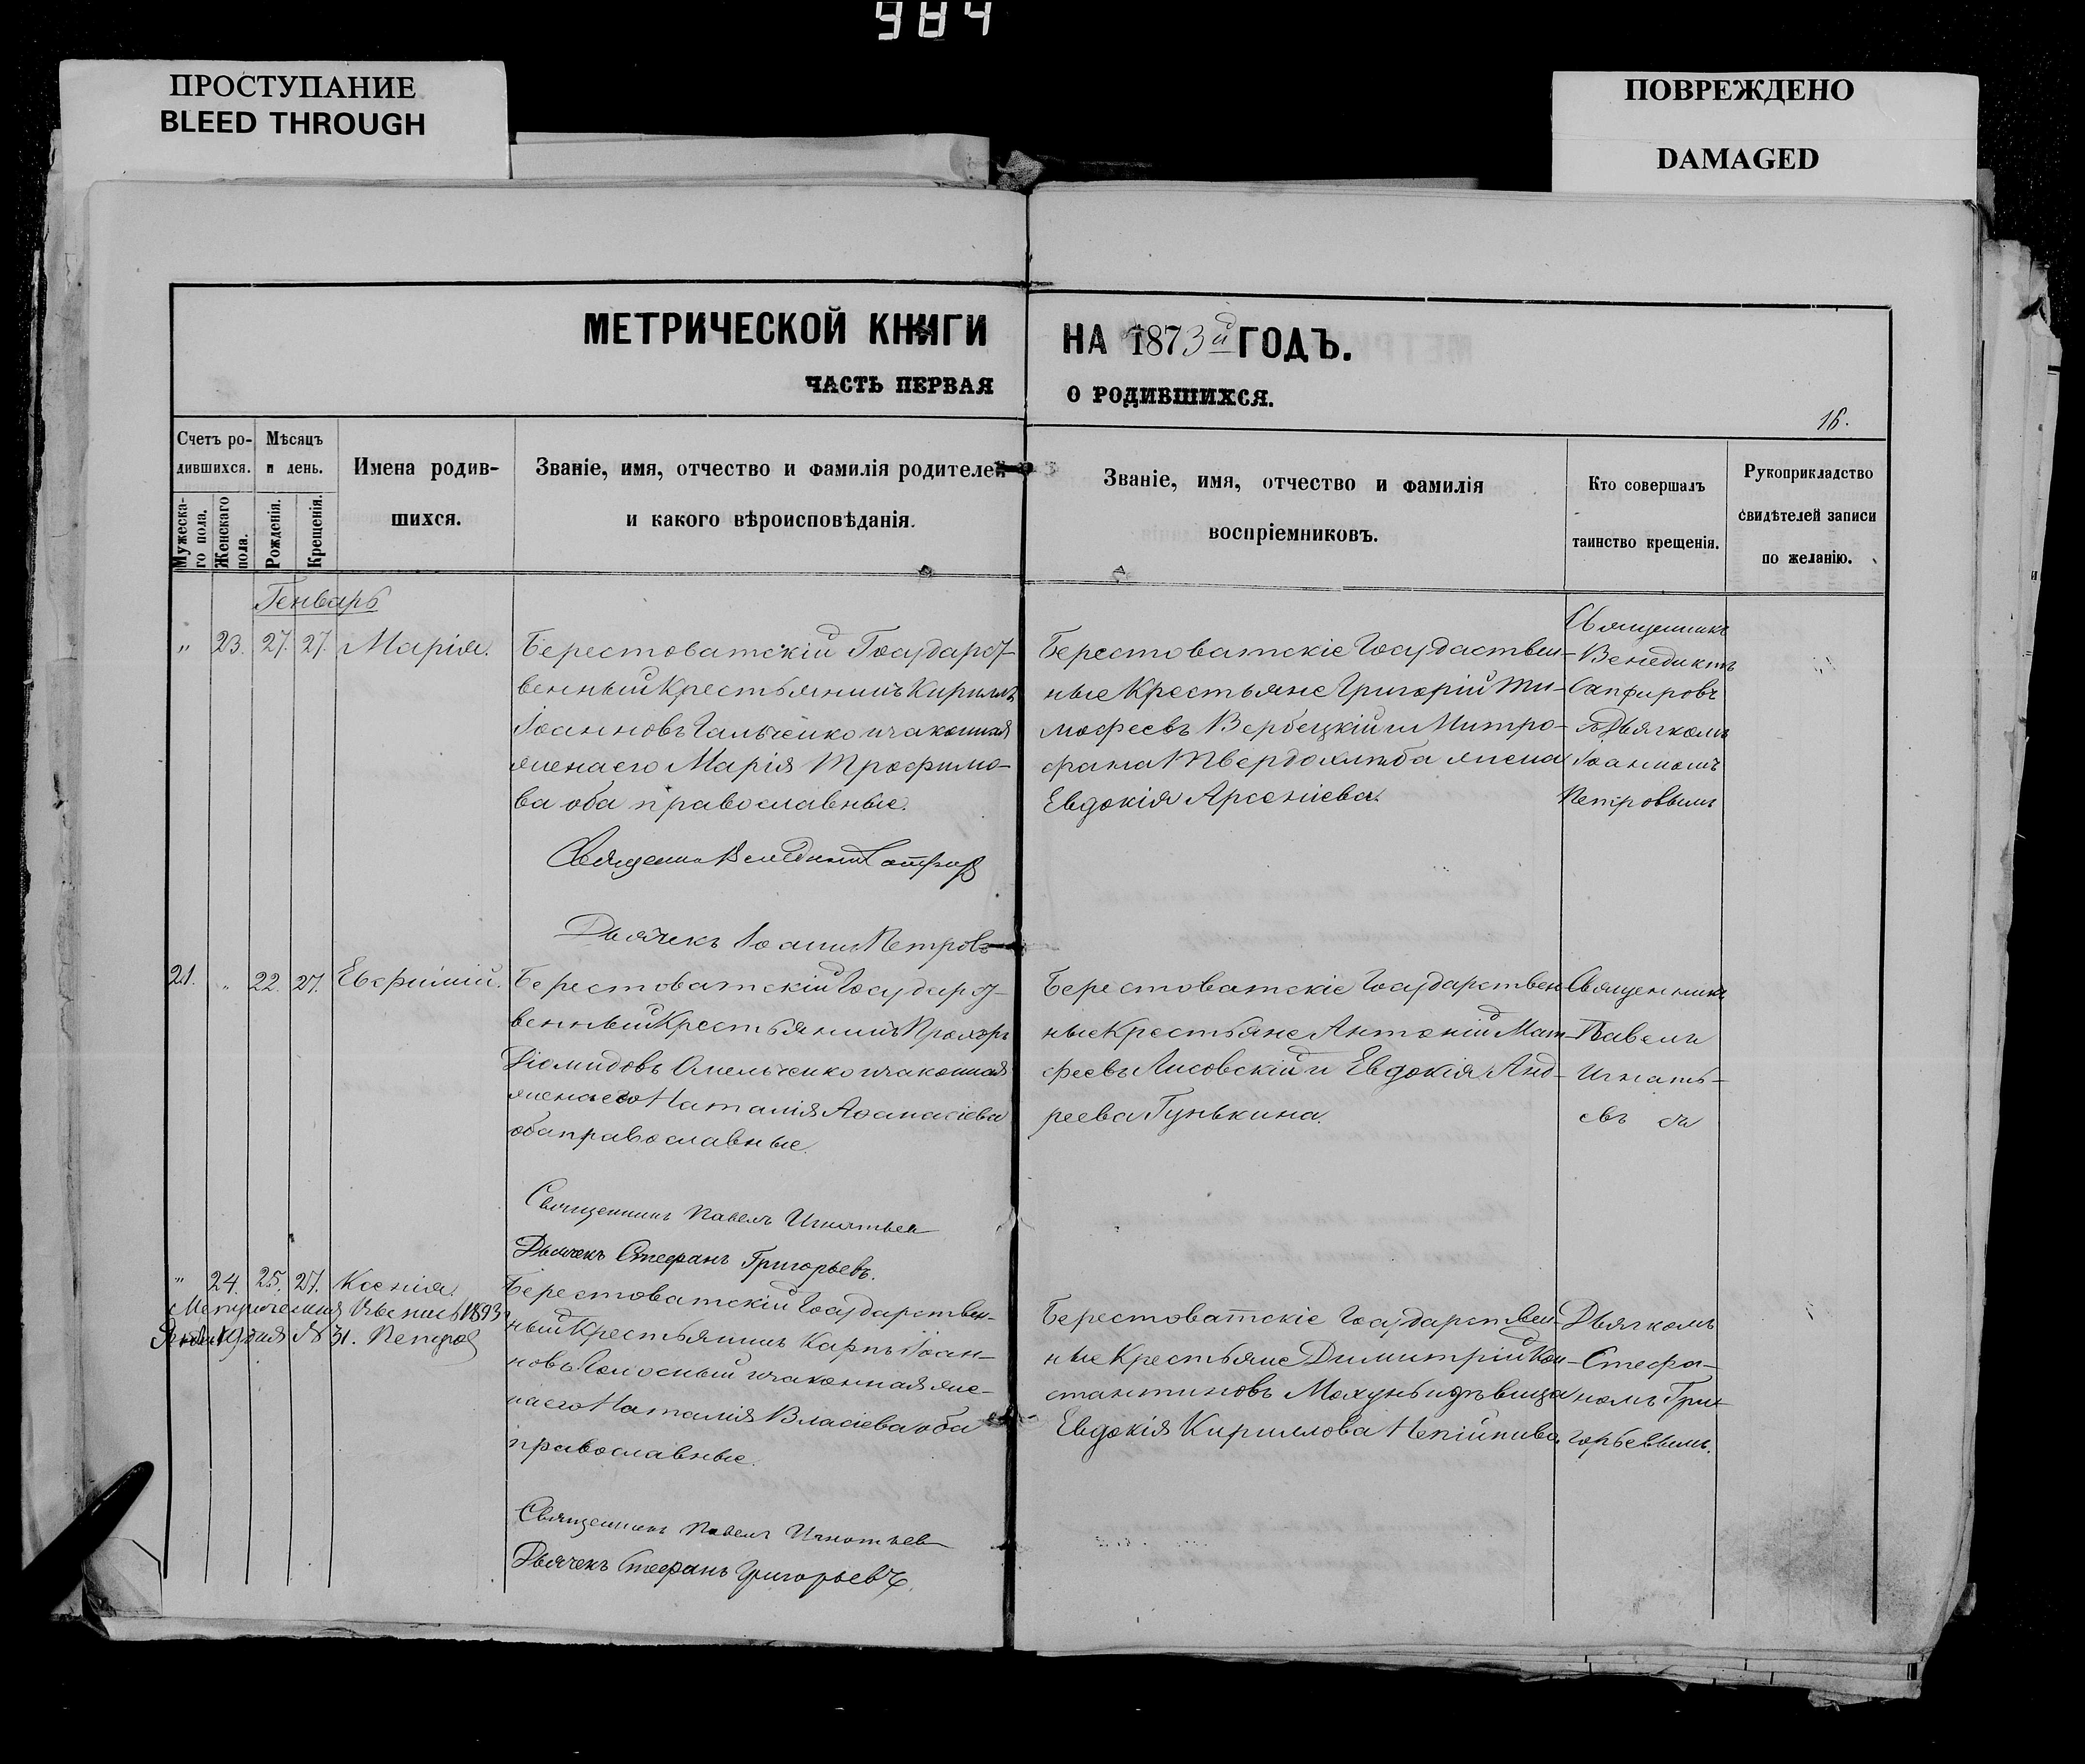 984
ПРОСТУПАНИЕ
BLEED THROUGH
ПОВРЕЖДЕНО
DAMAGED
МЕТРИЧЕСКОЙ КНИГИ НА 1873й ГОДЪ.
ЧАСТЬ ПЕРВАЯ О РОДИВШИХСЯ.
16.
Счетъ ро-
дившихся.
Мужеска-
го пола.
Женскаго
пола.
Мѣсяцъ
и день.
Рожденія.
Крещенія.
Имена родив-
шихся.
Званіе, имя, отчество и фамилія родителей
и какого вѣроисповѣданія.
Званіе, имя, отчество и фамилія
воспріемниковъ.
Кто совершалъ
таинство крещенія.
Рукоприкладство
свидѣтелей записи
по желанію.
Генварь
" 23. 27. 27. Марія.
Берестоватскій Государст-
венный Крестьянинъ Кириллъ
Іоанновъ Гальченко и законная
жена его Марія Трофимо-
ва оба православные.
Священн Венедиктъ Сапфиров
Дьячекъ Іоаннъ Петровъ
Берестоватскіе Государствен-
ные Крестьяне Григорій Ти-
мофеевъ Вербецкій и Митро-
фана Твердохлѣба жена
Евдокія Арсеніева.
Священникъ
Венедиктъ
Сапфировъ
съ Дьячкомъ
Іоанномъ
Петровымъ
21. " 22. 27. Евфимій.
Берестоватскій Государст-
венный Крестьянинъ Прохоръ
Діомидовъ Омельченко и законная
жена его Наталія Аѳанасіева
оба православные.
Священникъ Павелъ Игнатьев
Дьячекъ Стефанъ Григорьевъ.
Берестоватскіе Государствен
ные Крестьяне Антоній Мат-
феевъ Лисовскій и Евдокія Анд-
реева Гунькина.
Священникъ
Павелъ
Игнать-
евъ съ
" 24. 25. 27. Ксенія.
1893
№ 31. Петров
Берестоватскій Государствен-
ный Крестьянинъ Карпъ Іоан-
новъ и законная же-
на его Наталія Власіева оба
православные.
Священникъ Павелъ Игнатьев
Дьячекъ Стефанъ Григорьевъ.
Берестоватскіе Государствен-
ные Крестьяне Димитрій Кон-
стантиновъ Махунь и дѣвица
Евдокія Кириллова Непійпива.
Дьячкомъ
Стефа-
номъ Гри-
горьевымъ.